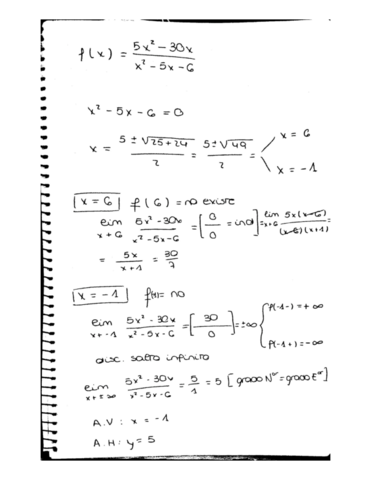 f(x) = 5x² - 30x / x² - 5x - 6
x² - 5x - 6 = 0
x = 5 ± √25+24 / 2 = 5 ± √49 / 2 = x = 6 x = -1
x = 6 f(6) = no existe
lim x→6 5x² - 30x / x² - 5x - 6 = [0/0 = ind] = lim x→6 5x(x-6) / (x-6)(x+1)
= 5x / x+1 = 30/7
x = -1 f(-1) = no
lim x→-1 5x² - 30x / x² - 5x - 6 = [30/0] = ±∞ f(-1-) = +∞ f(-1+) = -∞
disc. salto infinito
lim x→±∞ 5x² - 30x / x² - 5x - 6 = 5/1 = 5 [grado Nºʳ = grado Eºʳ]
A.V: x = -1
A.H: y = 5